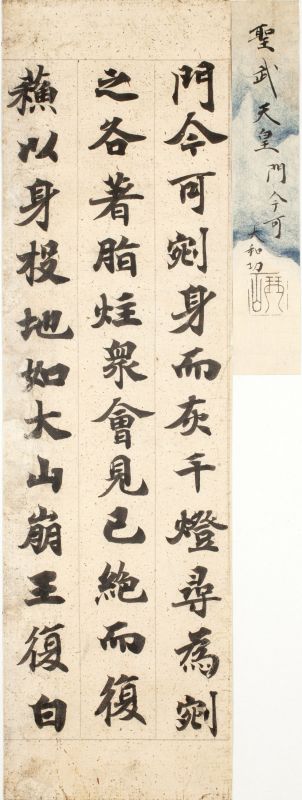 聖武天皇門今可
大和切
門今可剜身而灰千燈尋為剜
之各著脂炷衆會見已絶而復
蘓以身投地如大山崩王復白